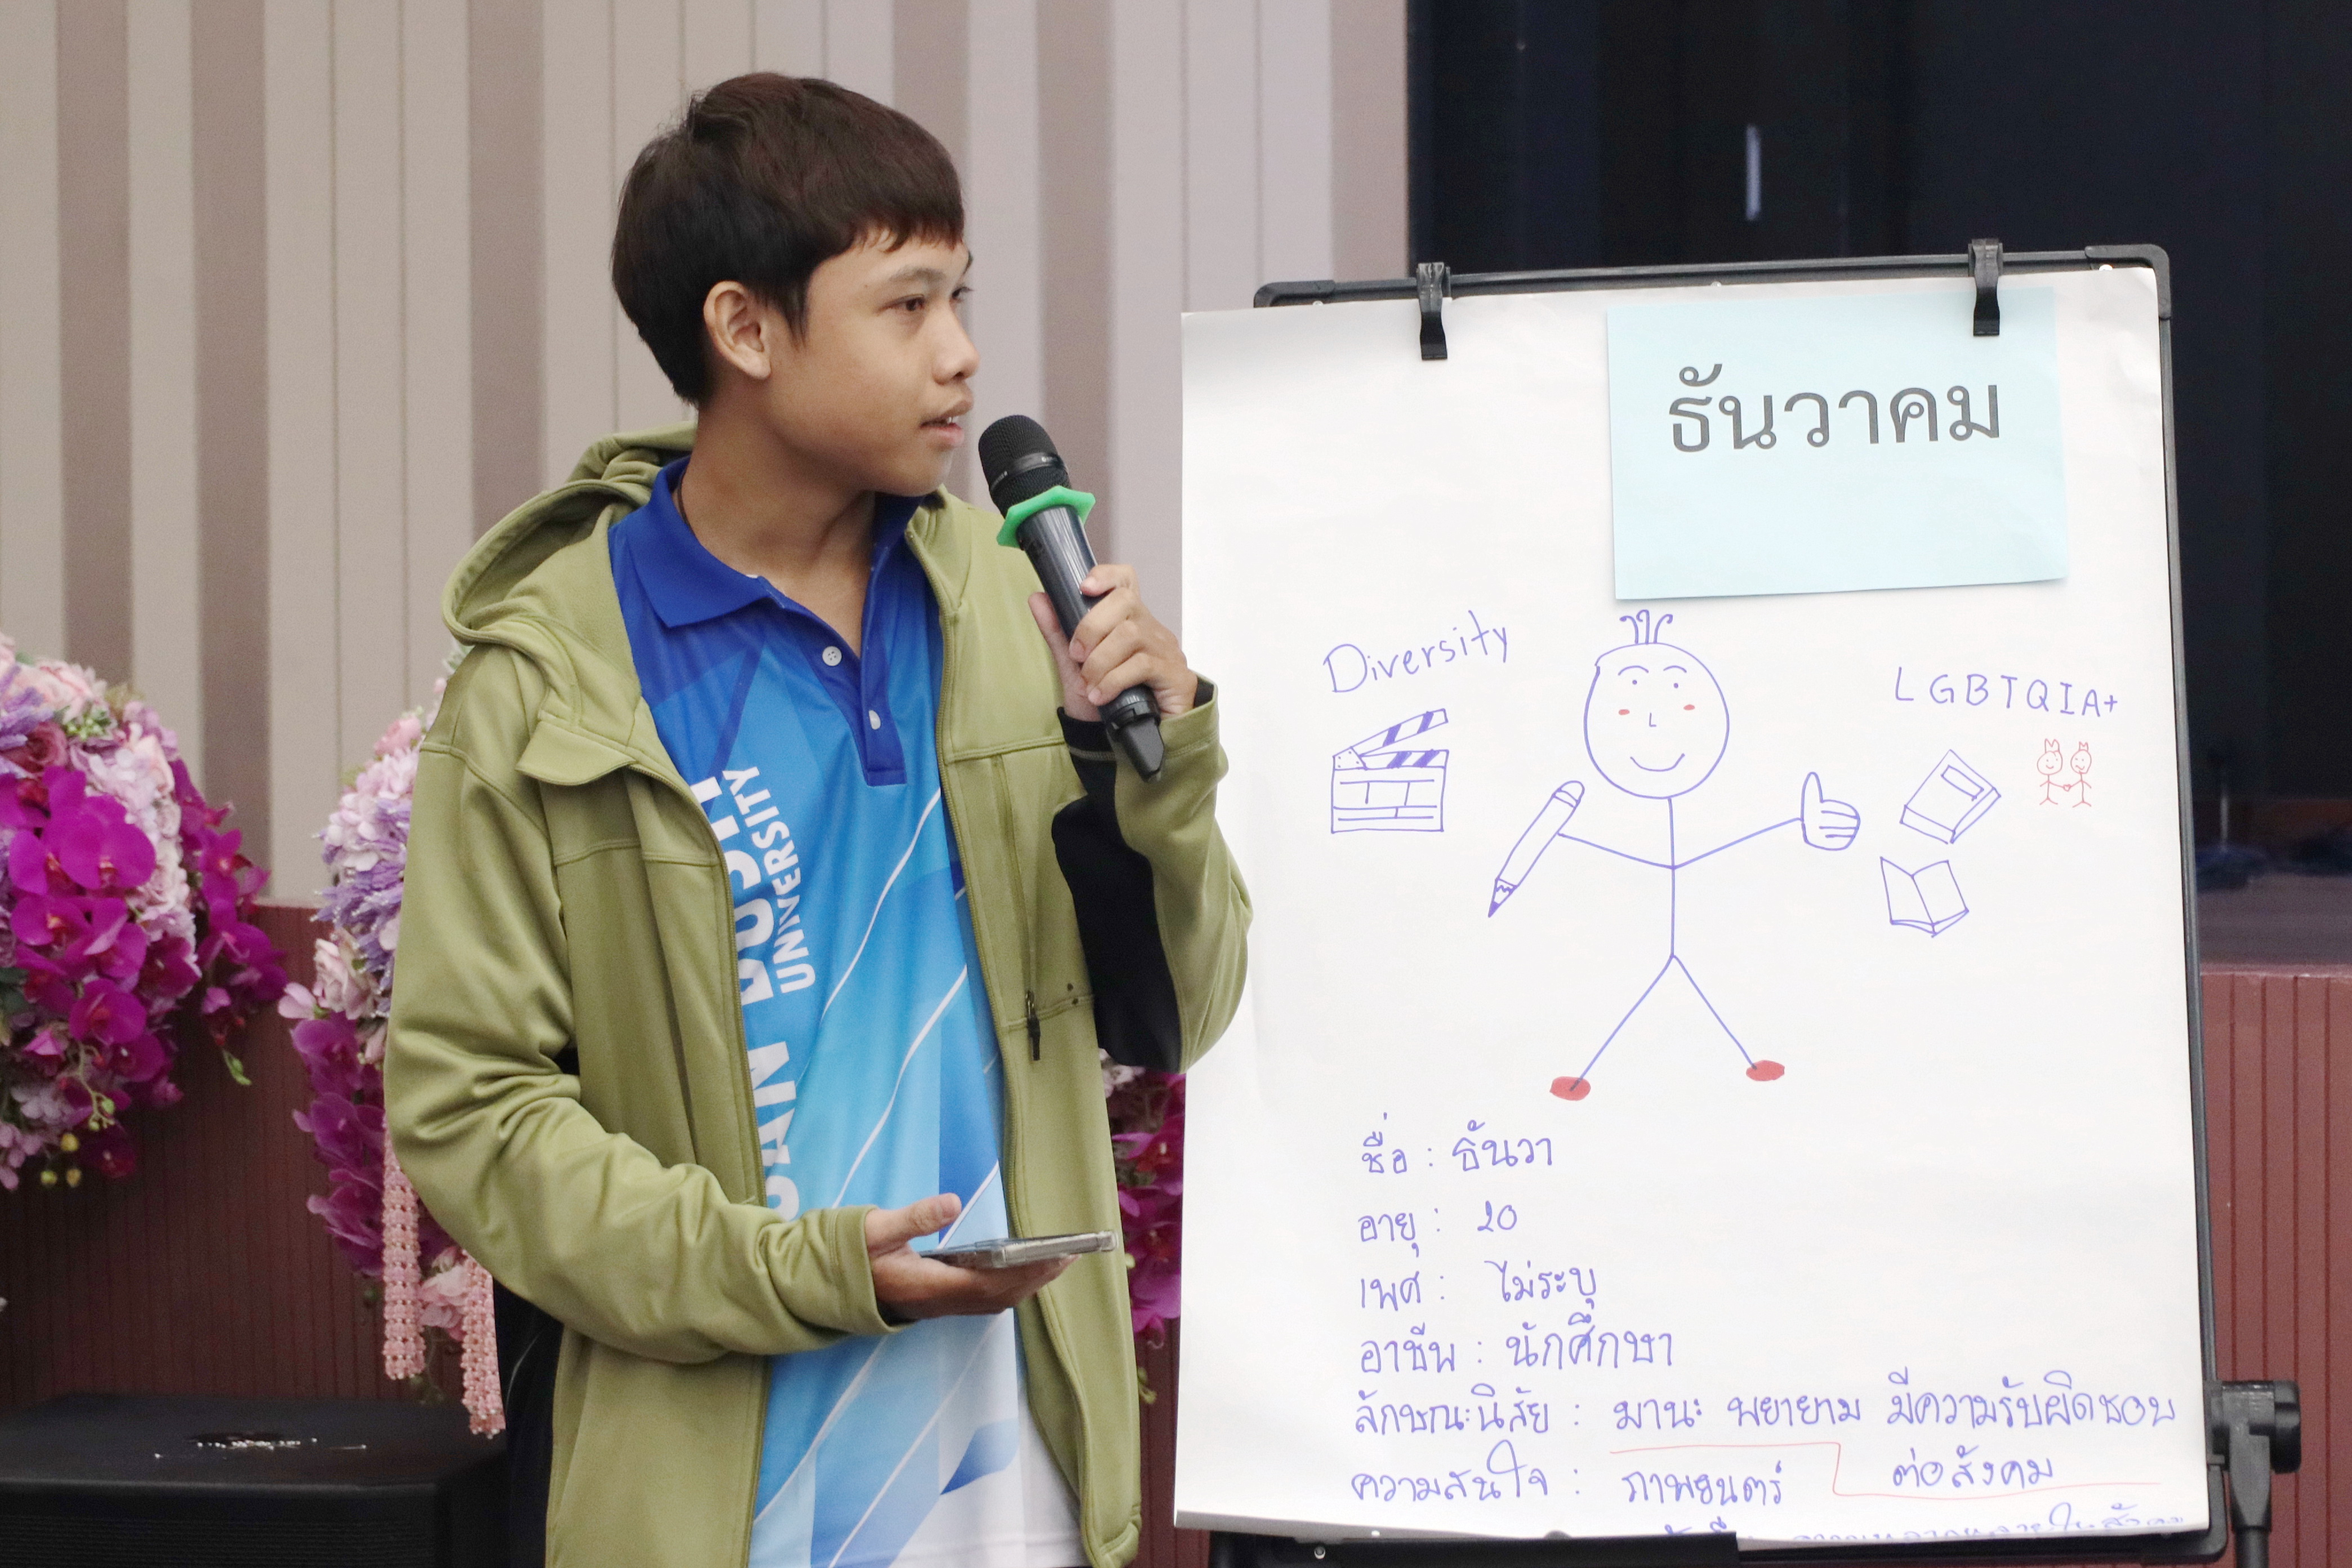 ธันวาคม
Diversity
LGBTQIA+
UNIVERSITY
ชื่อ : ธันวา
อายุ : 20
เพศ : ไม่ระบุ
อาชีพ : นักศึกษา
ลักษณะนิสัย : มานะ พยายาม มีความรับผิดชอบ
ต่อสังคม
ความสนใจ : ภาพยนตร์